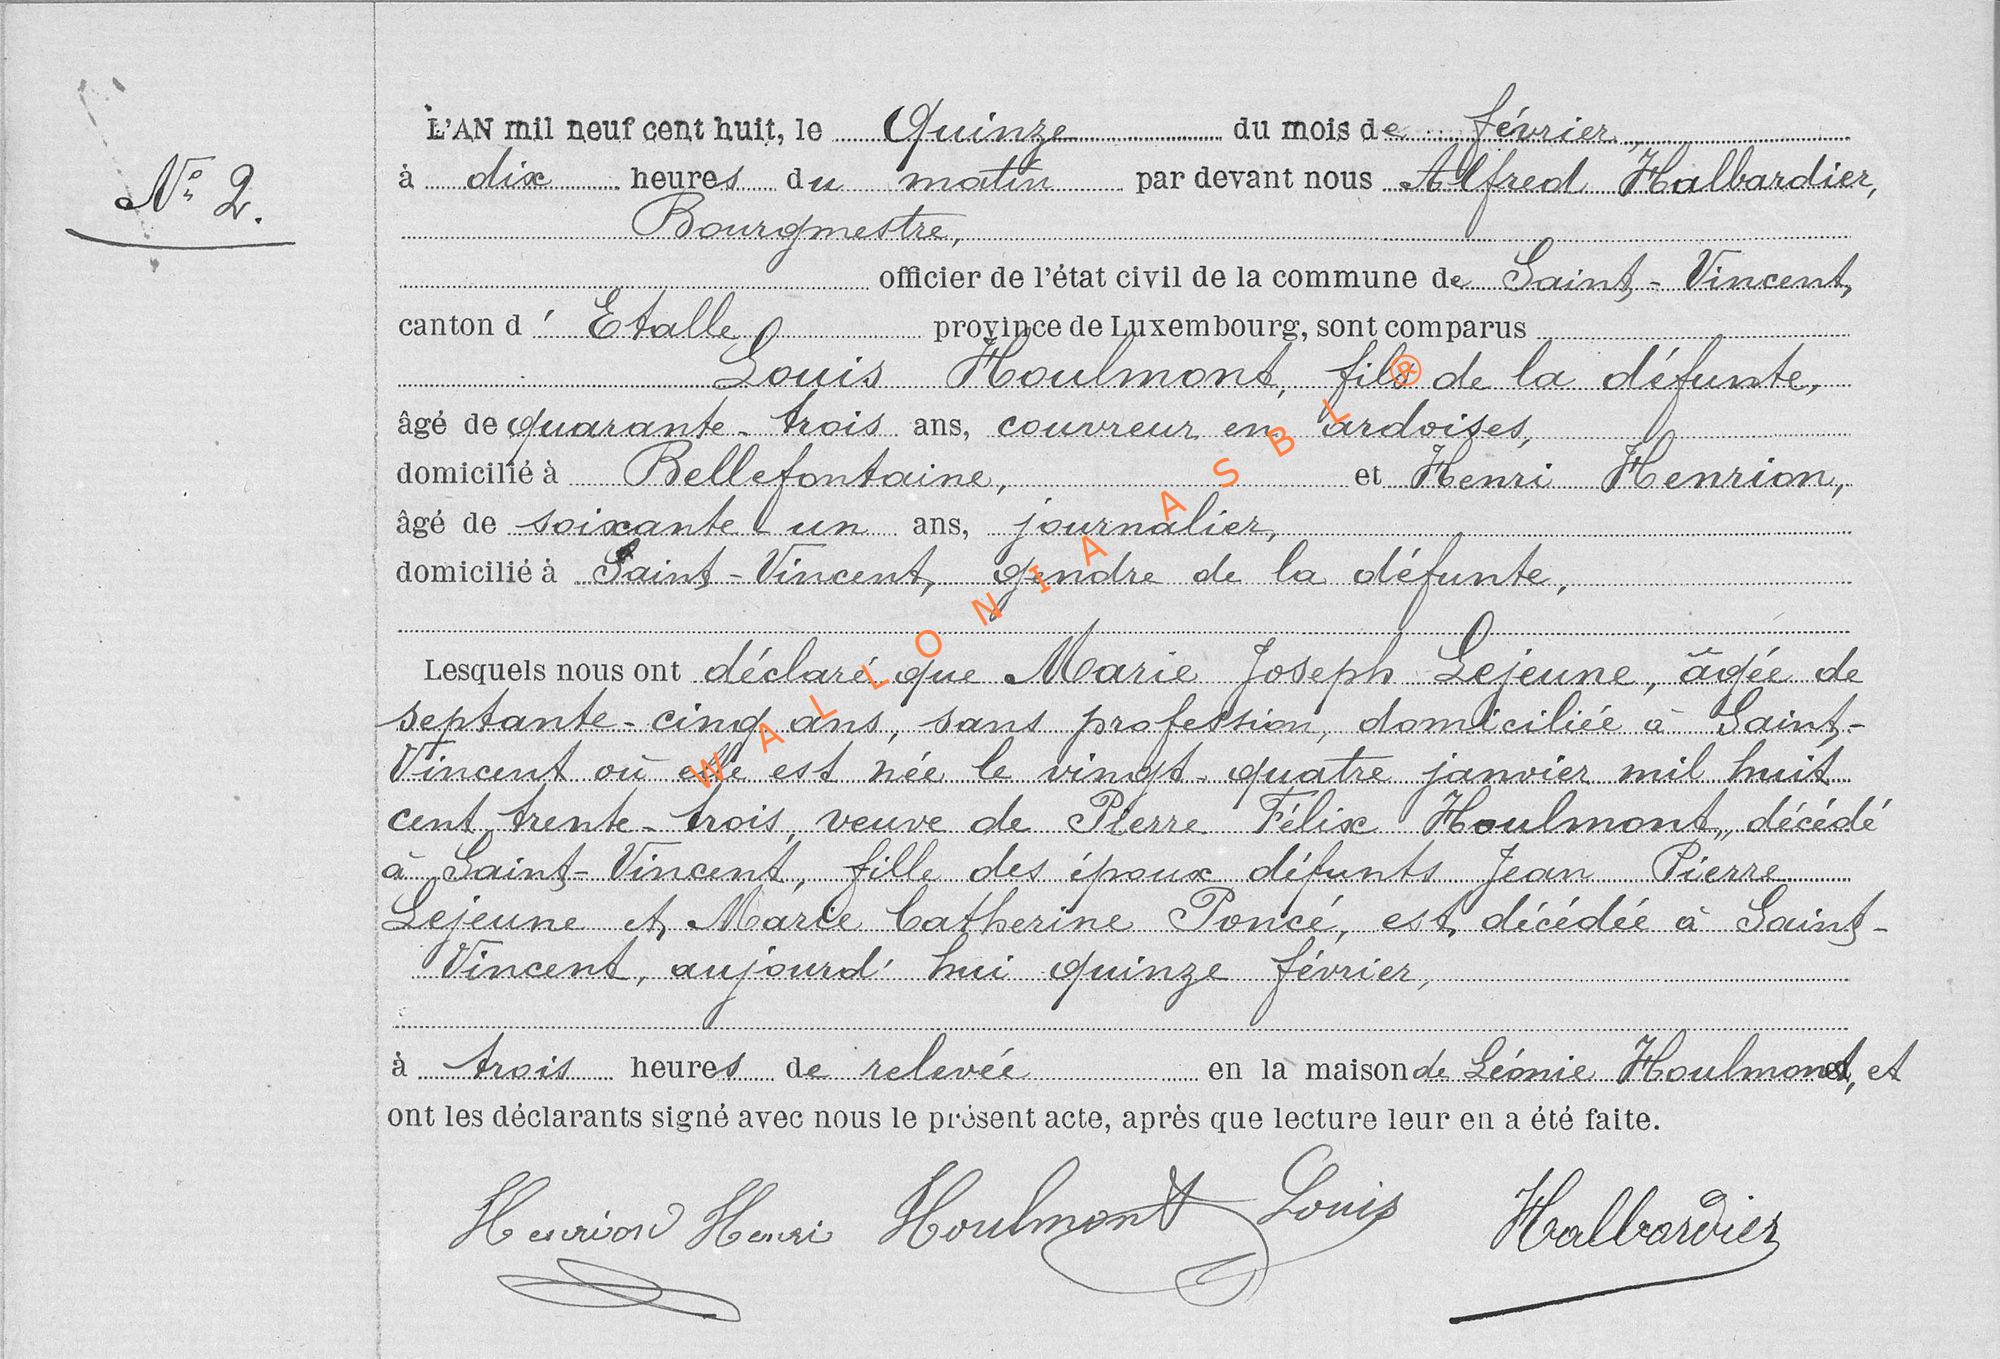 N° 2.
L'AN mil neuf cent huit, le Quinze du mois de février,
à dix heures du matin par devant nous Alfred Halbardier,
Bourgmestre,
officier de l'état civil de la commune de Saint-Vincent,
canton d' Etalle province de Luxembourg, sont comparus
Louis Houlmont, fils de la défunte,
âgé de quarante-trois ans, couvreur en ardoises,
domicilié à Bellefontaine, et Henri Henrion,
âgé de soixante-un ans, journalier,
domicilié à Saint-Vincent, gendre de la défunte,
Lesquels nous ont déclaré que Marie Joseph Lejeune, âgée de
septante-cinq ans, sans profession, domiciliée à Saint-
Vincent où elle est née le vingt-quatre janvier mil huit
cent trente-trois, veuve de Pierre Félix Houlmont, décédé
à Saint-Vincent, fille des époux défunts Jean Pierre
Lejeune et Marie Catherine Poncé, est décédée à Saint-
Vincent, aujourd'hui quinze février,
à trois heures de relevée en la maison de Léonie Houlmont, et
ont les déclarants signé avec nous le présent acte, après que lecture leur en a été faite.
Henrion Henri Houlmont Louis Halbardier
WALLONIA ASBL ®